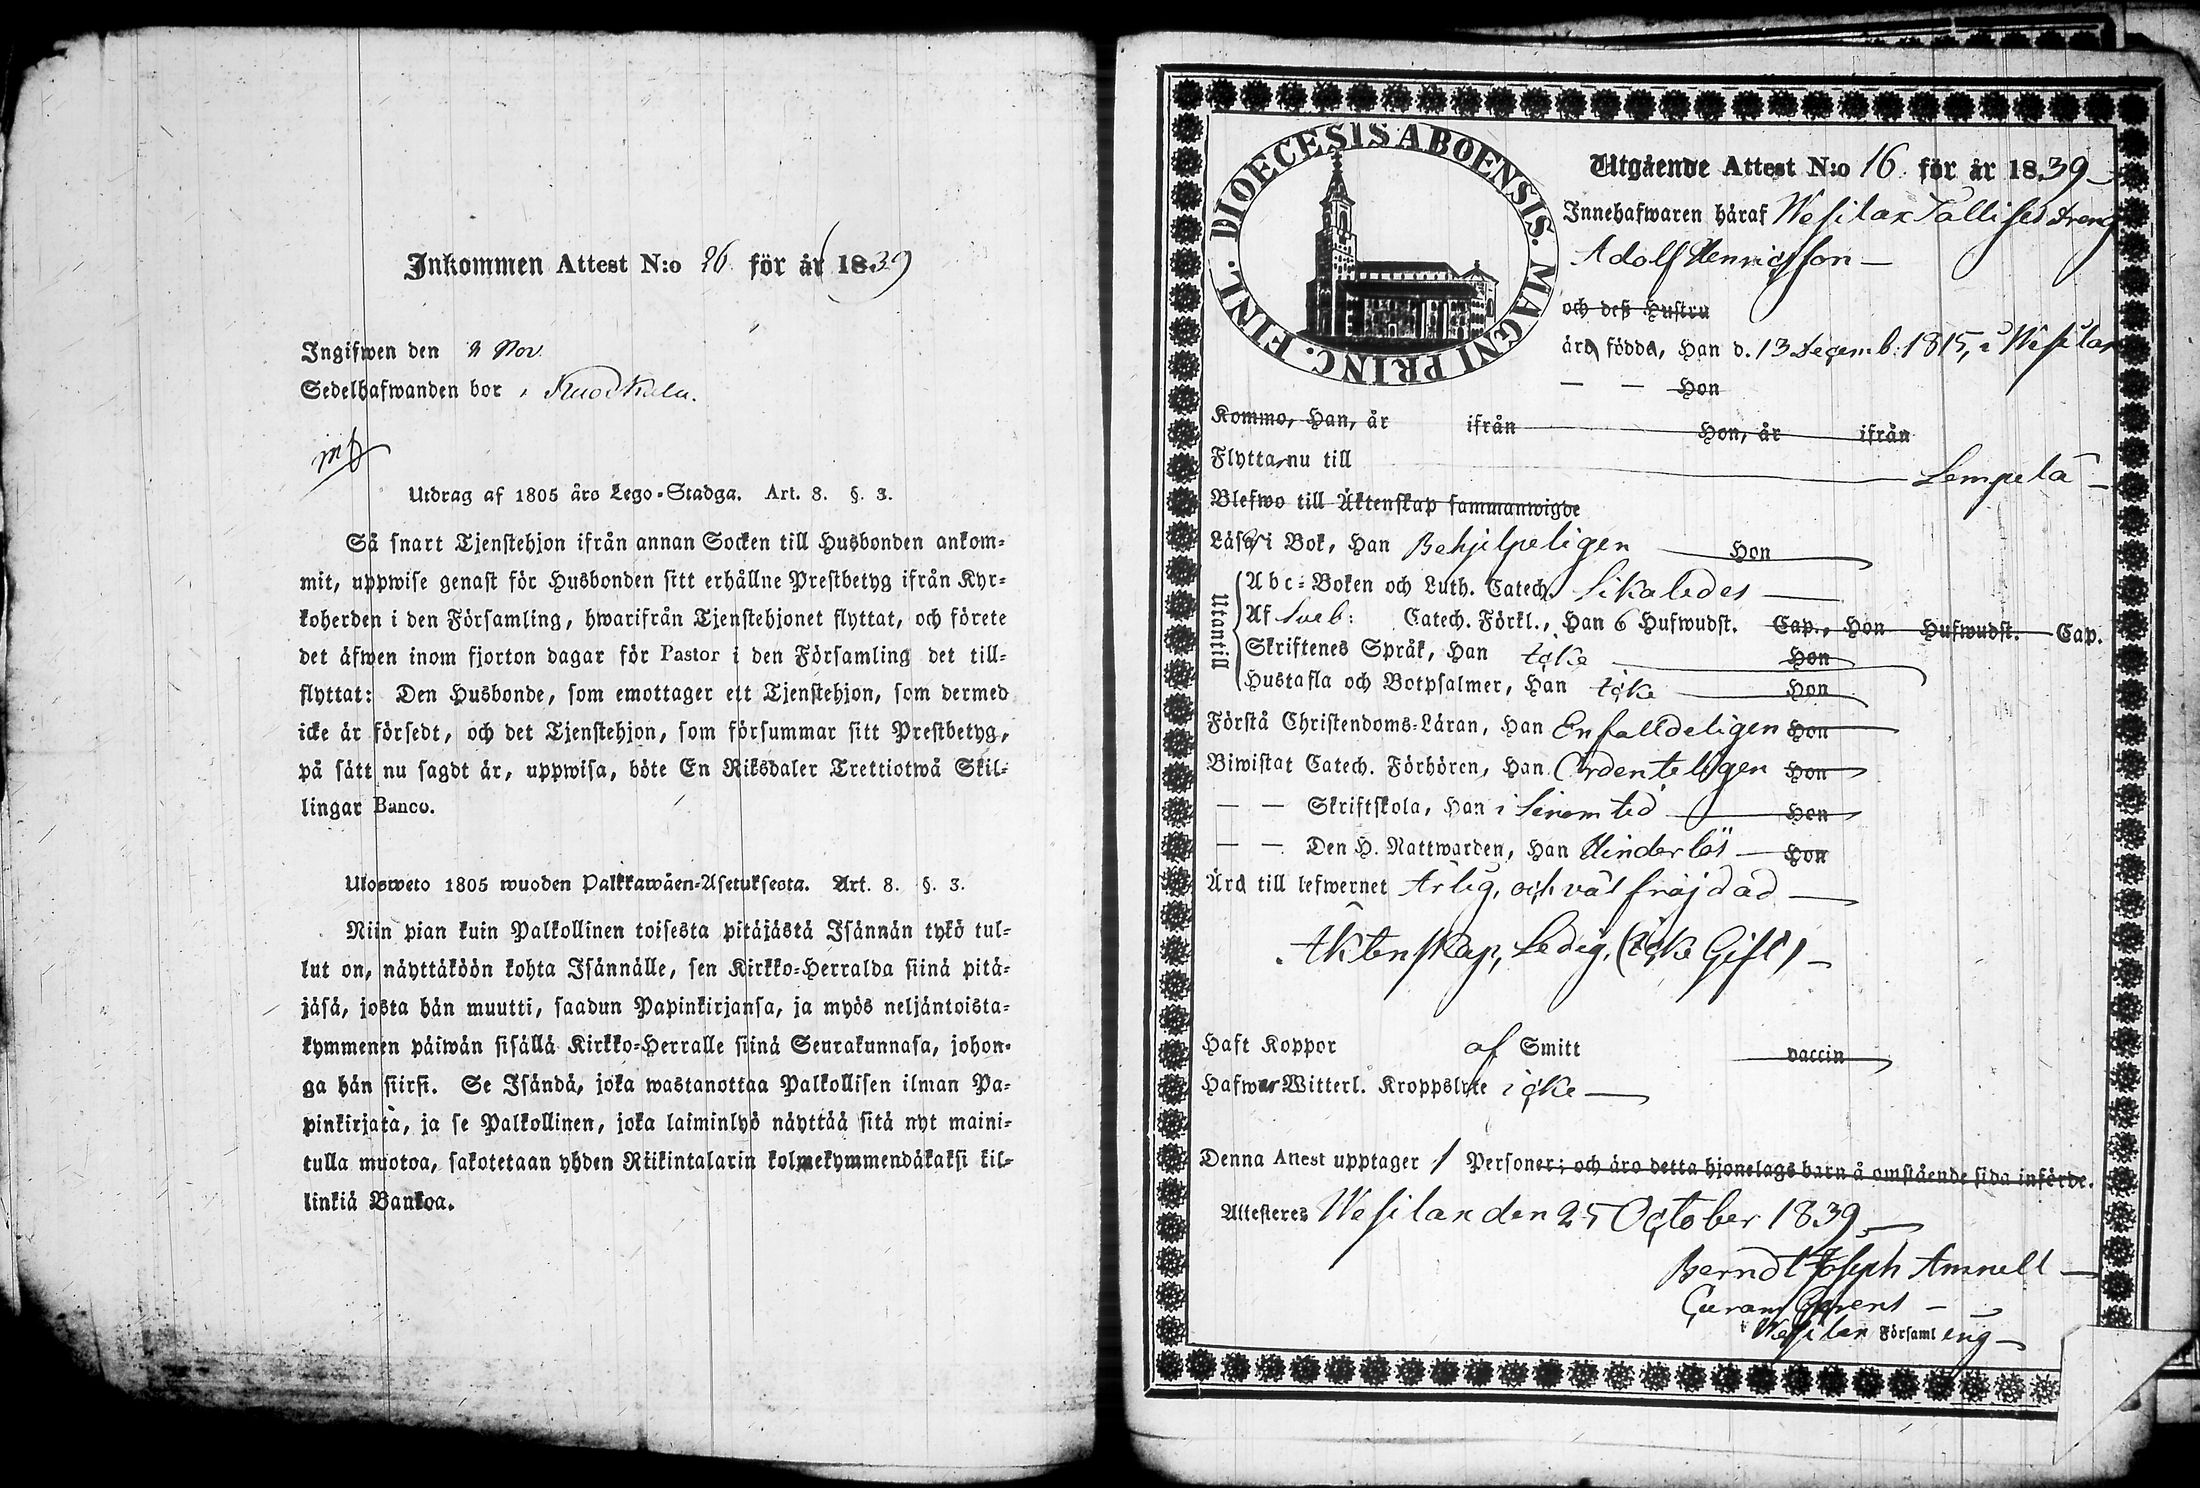 Inkommen Attest N:o 26 för år 1839
Ingifwen den 9 Nov.
Sedelhafwanden bor i Kuokkala.
Utdrag af 1805 års Lego-Stadga. Art. 8. §. 3.
Så snart Tjenstehjon ifrån annan Socken till Husbonden ankom-
mit, uppwise genast för Husbonden sitt erhållne Prestbetyg ifrån Kyr-
koherden i den Församling, hwarifrån Tjenstehjonet flyttat, och förete
det äfwen inom fjorton dagar för Pastor i den Församling det till-
flyttat: Den Husbonde, som emottager ett Tjenstehjon, som dermed
icke är försedt, och det Tjenstehjon, som försummar sitt Prestbetyg,
på sätt nu sagdt är, uppwisa, böte En Riksdaler Trettiotwå Skil-
lingar Banco.
Ulosweto 1805 wuoden Palkkawäen-Asetuksesta. Art. 8. §. 3.
Niin pian kuin Palkollinen toisesta pitäjästä Isännän tykö tul-
lut on, näyttäköön kohta Isännälle, sen Kirkko-Herralda siinä pitä-
jäsä, josta hän muutti, saadun Papinkirjansa, ja myös neljäntoista-
kymmenen päiwän sisällä Kirkko-Herralle siinä Seurakunnasa, johon-
ga hän siirsi. Se Isändä, joka wastanottaa Palkollisen ilman Pa-
pinkirjata, ja se Palkollinen, joka laiminlyö näyttää sitä nyt maini-
tulla muotoa, sakotetaan yhden Riikintalarin kolmekymmendäkaksi kil-
linkiä Bankoa.
DIOECESIS ABOENSIS. MAGNI PRINC. FINL.
Utgående Attest N:o 16 för år 1839
Innehafwaren häraf Wesilax Tallises dreng
Adolf Henricsson
och deß Hustru
äro födda, Han d. 13 Decemb. 1815, i Wesilax
— — Hon
Kommo, Han, år ifrån Hon, år ifrån
Flytta nu till Lempelä
Blefwo till Äktenskap sammanwigde
Läser i Bok, Han Behjelpeligen Hon
Utantill
Abc-Boken och Luth. Catech. Likaledes
Af Sveb: Catech. Förkl., Han 6 Hufwudst. Cap., Hon Hufwudst. Cap.
Skriftenes Språk, Han icke Hon
Hustafla och Botpsalmer, Han icke Hon
Förstå Christendoms-Läran, Han Enfalldeligen Hon
Biwistat Catech. Förhören, Han Ordenteligen Hon
— — Skriftskola, Han i sinom tid Hon
— — Den H. Nattwarden, Han Hinderlös Hon
Ärd till lefwernet Ärlig, och väl fräjdad
Äktenskap, Ledig, (icke Gift)
Haft Koppor af Smitt vaccin
Hafwer Witterl. Kroppslyte icke
Denna Attest upptager 1 Personer; och äro detta hjonelags barn å omstående sida införde.
Attesteres Wesilax den 25 October 1839
Berndt Joseph Amnell
Curam Gerens
Wesilax Församl ing